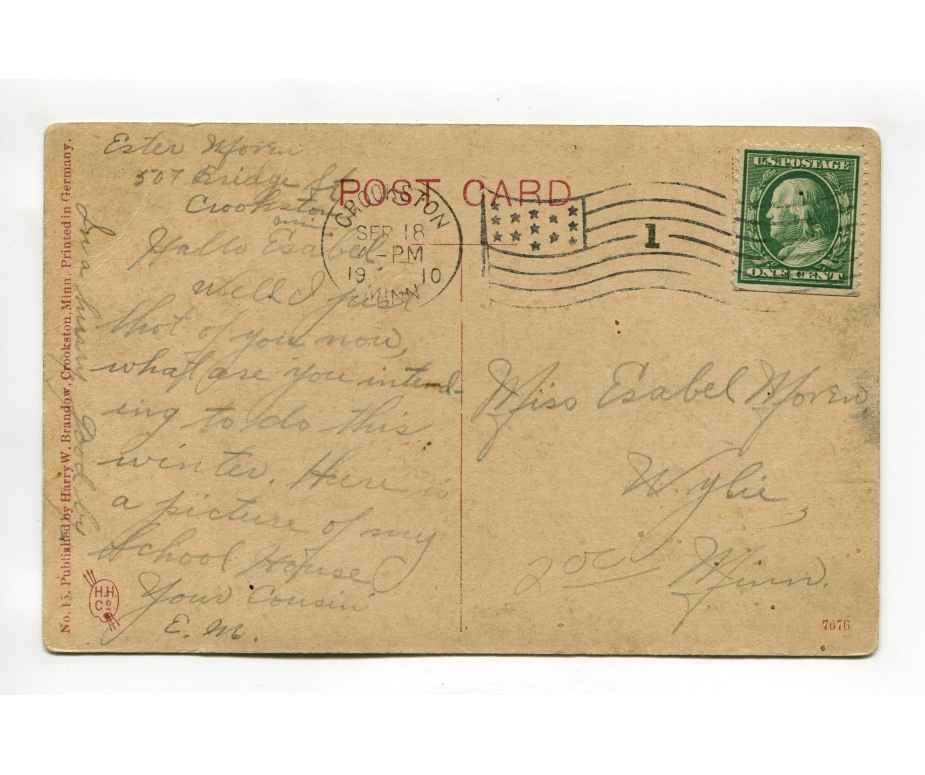 Ester Moren
507 Bridge St
Crookston
Minn
POST CARD
CROOKSTON
SEP 18
-PM
19 10
MINN.
1
U.S. POSTAGE
ONE CENT
Hallo Esabel
Well I just
thot of you now,
what are you intend-
ing to do this
winter. Here is
a picture of my
School House
Your Cousin
E. M.
hurry Good by
Miss Esabel Moren
Wylie,
Minn.
No. 15, Published by Harry W. Brandow, Crookston, Minn. Printed in Germany.
H.H.
Co
7676